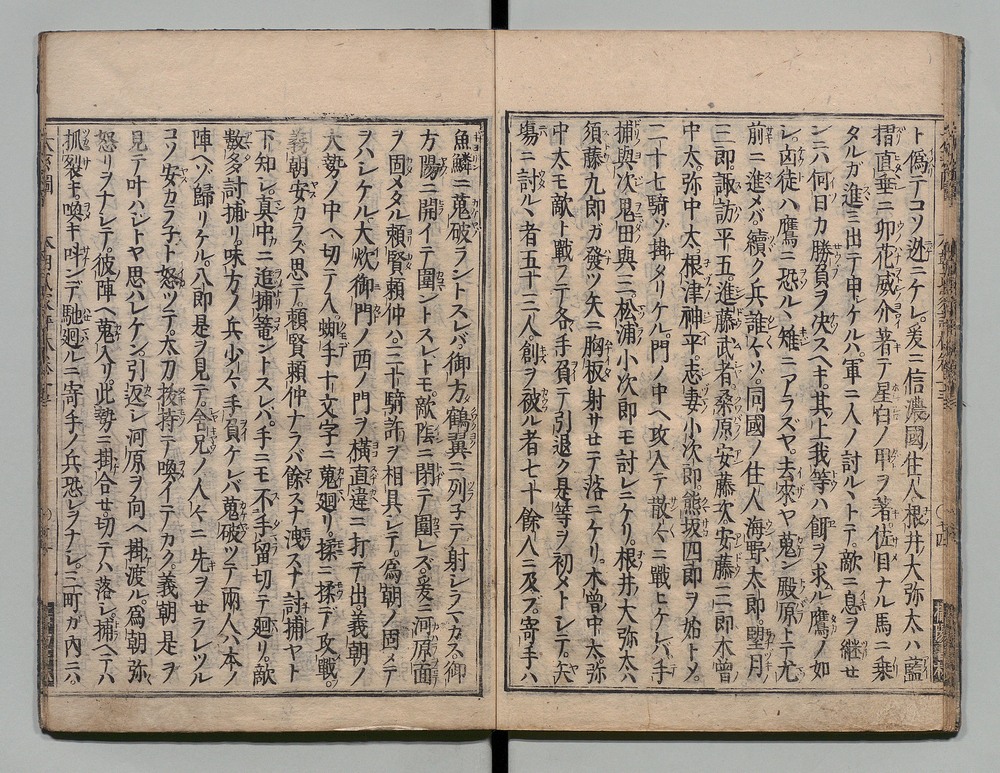 ト偽テコソ迯ニケレ。爰ニ信濃國住人根井大弥太ハ藍
摺直垂ニ卯花威ノ介著テ星白ノ甲ヲ著佐目ナル馬ニ乗
タルガ進ミ出テ申ケルハ軍ニ入ノ討ルヽトテ。敵ニ息ヲ継セ
ンニハ何日カ勝負ヲ決スヘキ。其上我等ハ餌ヲ求ル鷹ノ如
レ。凶徒ハ鷹ニ恐ルヽ雉ニアラズヤ。去來ヤ蒐ン殿原トテ尤
前ニ進メバ續ク兵誰々ゾ。同國ノ住人海野太郎。望月
三郎諏訪平五。進藤武者桑原安藤次。安藤三。三郎木曽
中太。弥中太。根津神平。志妻小次郎熊坂四郎ヲ始トメ。
二十七騎ゾ掛タリケル。門ノ中ヘ攻入テ散々ニ戰ヒケレバ手
捕與次鬼田與三。松浦小次郎モ討レニケリ。根井大弥太ハ
須藤九郎ガ發ツ矢ニ胸板射サセテ落ニケリ。木曽中太弥
中太モ敵ト戰フテ各手負テ引退ク是等ヲ初メトシテ。矢
塲ニ討ルヽ者五十三人。創ヲ破ル者七十餘人ニ及ブ。寄手ハ
魚鱗ニ蒐破ラントスレバ。御方鶴翼ニ列子テ射シラマカス。御
方陽ニ開イテ圍ントスレトモ。敵陰ニ閉テ圍レズ。爰ニ河原面
ヲ固メタル頼賢頼仲ハ。二十騎許ヲ相具レテ。為朝ノ固メテ
ヲハシケル。大炊御門ノ西ノ門ヲ横直違ニ打テ出。義朝ノ
大勢ノ中ヘ切テ入。蜘手十文字ニ蒐廻リ。揉ニ揉デ攻戰。
義朝安カラズ思テ。頼賢頼仲ナラバ餘スナ洩スナ討捕ヤト
下知レ。真中ニ追捕篭ントスレバ。手ニモ不手留切テ廻リ。敵
數多討捕リ。味方ノ兵少々手負ケレバ蒐破ツテ兩人ハ本ノ
陣ヘゾ歸リケル。八郎是ヲ見テ。舎兄ノ人々ニ先ヲせラレツル
コソ安カラ子ト怒ツテ。太刀抜持テ喚イテカク。義朝是ヲ
見テ叶ハジトヤ思ハレケン。引返レ河原ヲ向ヘ掛渡ル。為朝弥
怒リヲナレテ。彼陣ヘ蒐入リ。此勢ニ掛合せ。切テハ落レ。捕ヘテハ
抓裂キ。喚キ叫ンデ馳廻ルニ寄手ノ兵恐レヲナレ。二町ガ内ニハ。